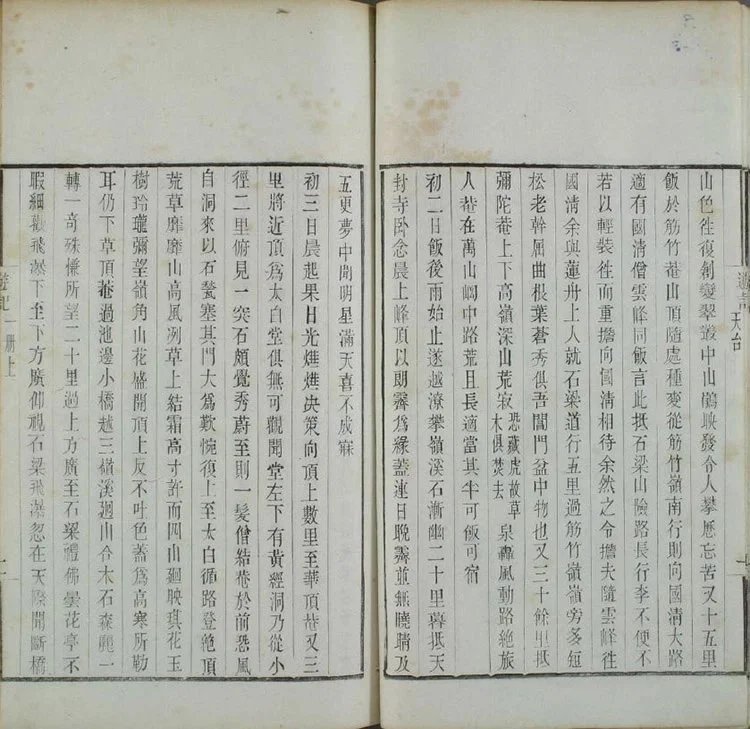 山色往復創變翠叢中山鵑映發令人攀歷忘苦又十五里
飯於筋竹菴山頂隨處種麥從筋竹嶺南行則向國清大路
適有國清僧雲峰同飯言此抵石梁山險路長行李不便不
若以輕裝往而重擔向國清相待余然之令擔夫隨雲峰往
國清余與蓮舟上人就石梁道行五里過筋竹嶺嶺旁多短
松老幹屈曲根葉蒼秀俱吾閶門盆中物也又三十餘里抵
彌陀菴上下高嶺深山荒寂恐藏虎故草木俱焚去泉轟風動路絕旅
人菴在萬山㘭中路荒且長適當其半可飯可宿
初二日飯後雨始止遂越潦攀嶺溪石漸幽二十里暮抵天
封寺臥念晨上峰頂以朗霽爲緣蓋連日晚霽並無曉晴及
五更夢中聞明星滿天喜不成寐
初三日晨起果日光燁燁決策向頂上數里至華頂菴又三
里將近頂爲太白堂俱無可觀聞堂左下有黃經洞乃從小
徑二里俯見一突石頗覺秀蔚至則一髮僧結菴於前恐風
自洞來以石甃塞其門大爲歎惋復上至太白循路登絕頂
荒草靡靡山高風冽草上結霜高寸許而四山迴映琪花玉
樹玲瓏彌望嶺角山花盛開頂上反不吐色蓋爲高寒所勒
耳仍下草頂菴過池邊小橋越三嶺溪迴山合木石森麗一
轉一奇殊慊所望二十里過上方廣至石梁禮佛曇花亭不
暇細觀飛瀑下至下方廣仰視石梁飛瀑忽在天際聞斷橋
遊記 天台
遊記 一冊上